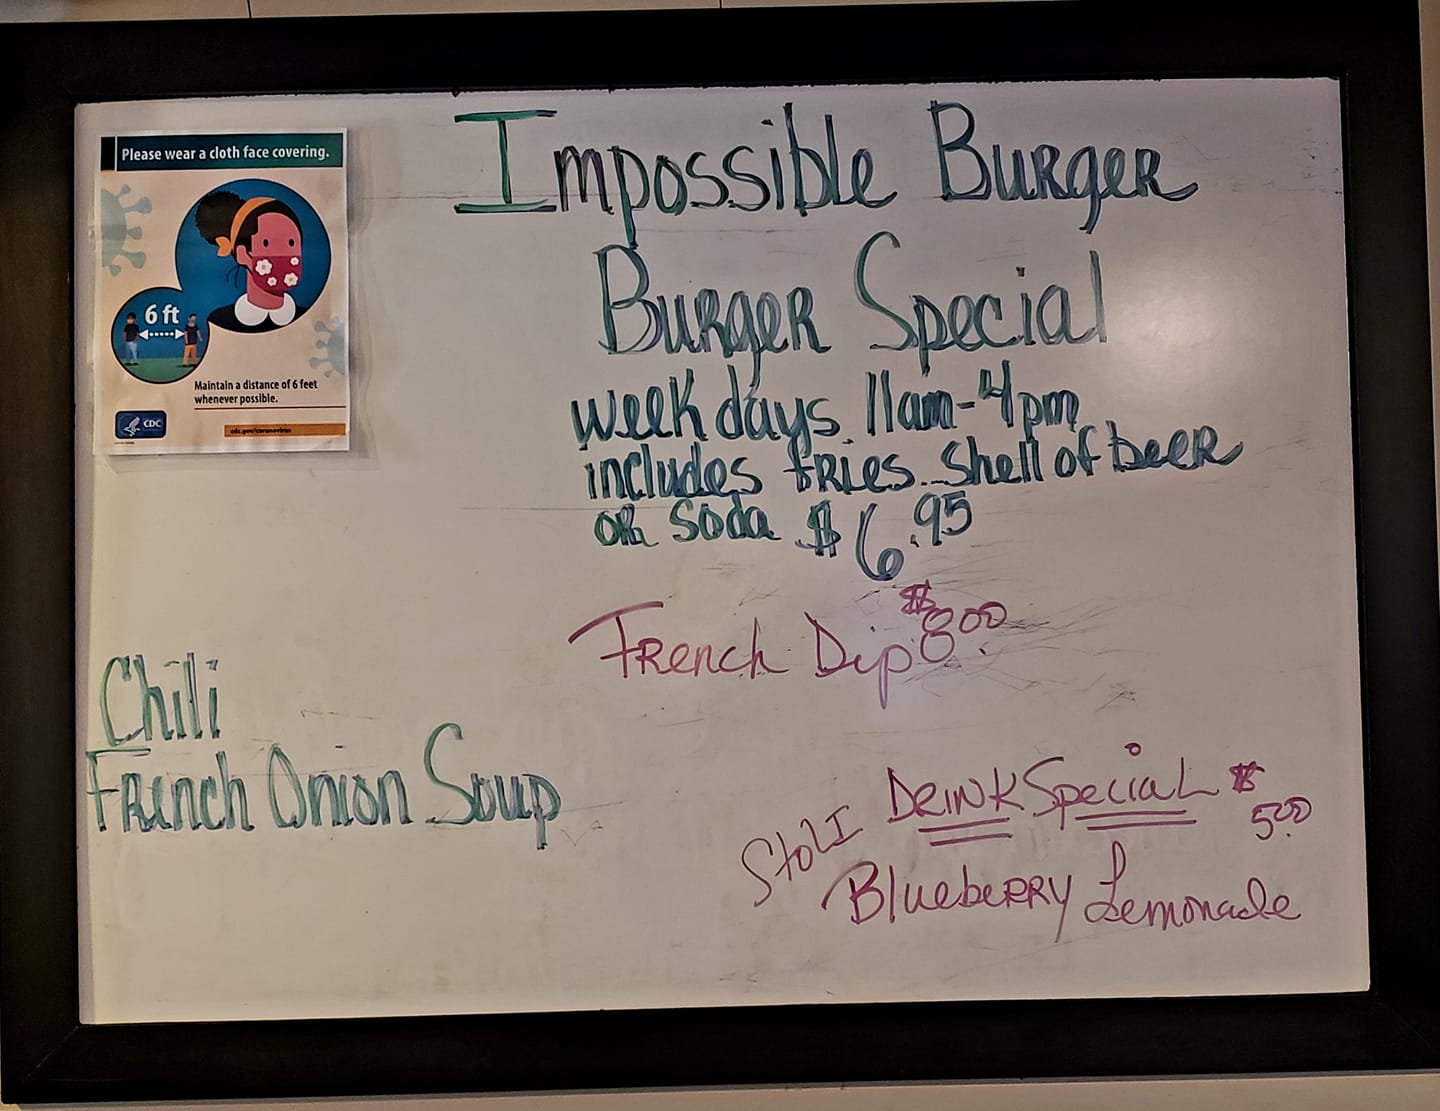 Please wear a cloth face covering.
6 ft
Maintain a distance of 6 feet
whenever possible.
CDC
cdc.gov/coronavirus
Impossible Burger
Burger Special
weekdays 11am-4pm
includes fries. Shell of beer
or soda $6.95
French Dip $8.00
Chili
French Onion Soup
Drink Special $5.00
Stoli
Blueberry Lemonade